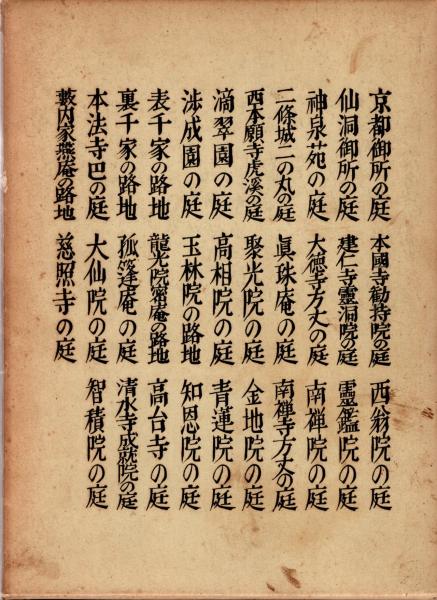 京都御所の庭
仙洞御所の庭
神泉苑の庭
二條城二の丸の庭
西本願寺虎溪の庭
滴翠園の庭
渉成園の庭
表千家の路地
裏千家の路地
本法寺巴の庭
藪内家燕庵の路地
本國寺勧持院の庭
建仁寺靈洞院の庭
大徳寺方丈の庭
眞珠庵の庭
聚光院の庭
高相院の庭
玉林院の路地
龍光院密庵の路地
孤篷庵の庭
大仙院の庭
慈照寺の庭
西翁院の庭
靈鑑院の庭
南禅院の庭
南禅寺方丈の庭
金地院の庭
青蓮院の庭
知恩院の庭
高台寺の庭
清水寺成就院の庭
智積院の庭